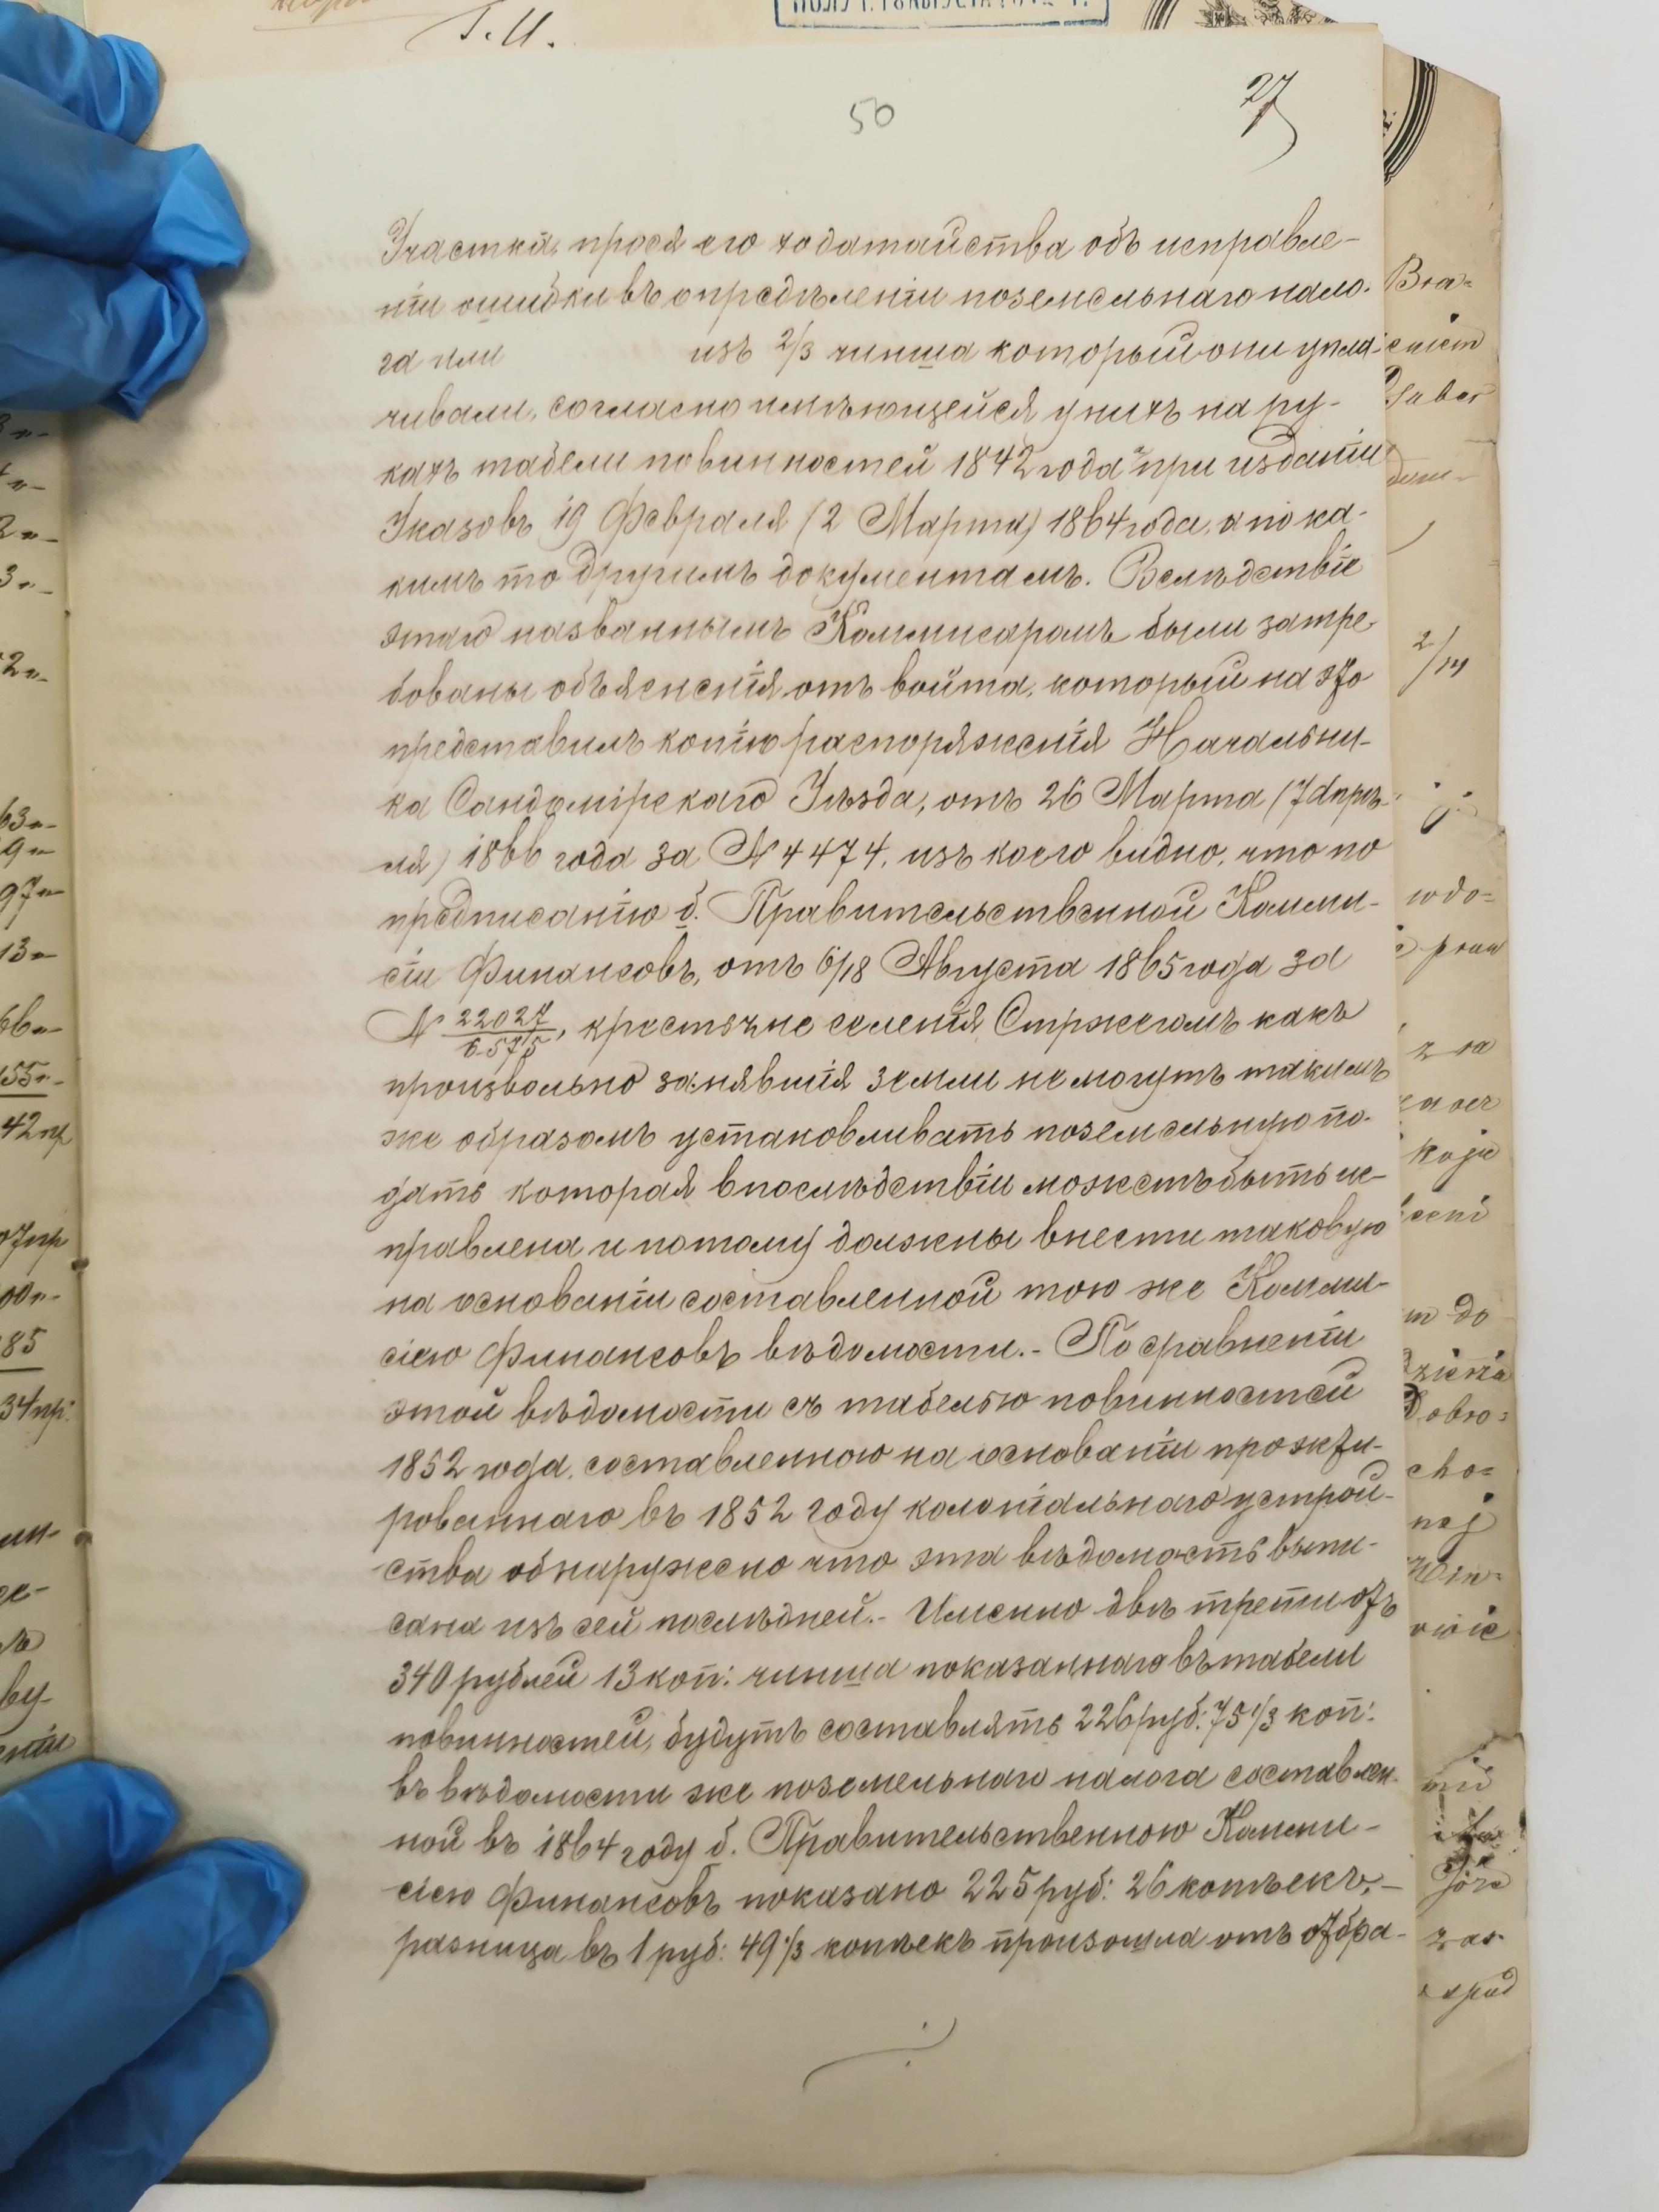 Г. И.
50
27
Участка, прося его ходатайства объ исправле-
ніи ошибки въ опредѣленіи поземельнаго нало-
га или изъ 2/3 чинша который они упла-
чивали, согласно имѣющейся у нихъ на ру-
кахъ табели повинностей 1842 года при изданіи
Указовъ 19 Февраля (2 Марта) 1864 года, а по ка-
кимъ то другимъ документамъ. Вслѣдствіе
этаго названнымъ Коммисаромъ были затре-
бованы объясненія отъ войта, который на это
представилъ копію распоряженія Начальни-
ка Сандомірскаго Уѣзда, отъ 26 Марта (7 Апрѣ-
ля) 1866 года за № 4474, изъ коего видно, что по
предписанію б. Правительственной Комми-
сіи Финансовъ, отъ 6/18 Августа 1865 года за
№ 22027/6575, крестьяне селенія Стржегомъ какъ
произвольно занявшія земли не могутъ такимъ
же образомъ установливать поземельную по-
дать которая впослѣдствіи можетъ быть ис-
правлена и потому должны внести таковую
на основаніи составленной тою же Комми-
сіею Финансовъ вѣдомости.- По сравненіи
этой вѣдомости съ табелью повинностей
1852 года, составленною на основаніи проэкти-
рованнаго въ 1852 году колоніальнаго устрой-
ства обнаружено что эта вѣдомость выпи-
сана изъ сей послѣдней.- Именно двѣ трети отъ
340 рублей 13 коп: чинша показаннаго въ табели
повинностей, будутъ составлять 226 руб: 75 1/3 коп:
въ вѣдомости же поземельнаго налога составлен-
ной въ 1864 году б. Правительственною Комми-
сіею Финансовъ показано 225 руб: 26 копѣекъ,-
разница въ 1 руб: 49 1/3 копѣекъ произошла отъ отбра-